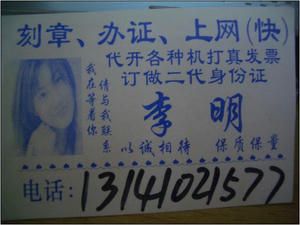 刻章、办证、上网(快)
代开各种机打真发票
订做二代身份证
我在等着你
请与我联系
李 明
以诚相待 保质保量
电话:13141021577